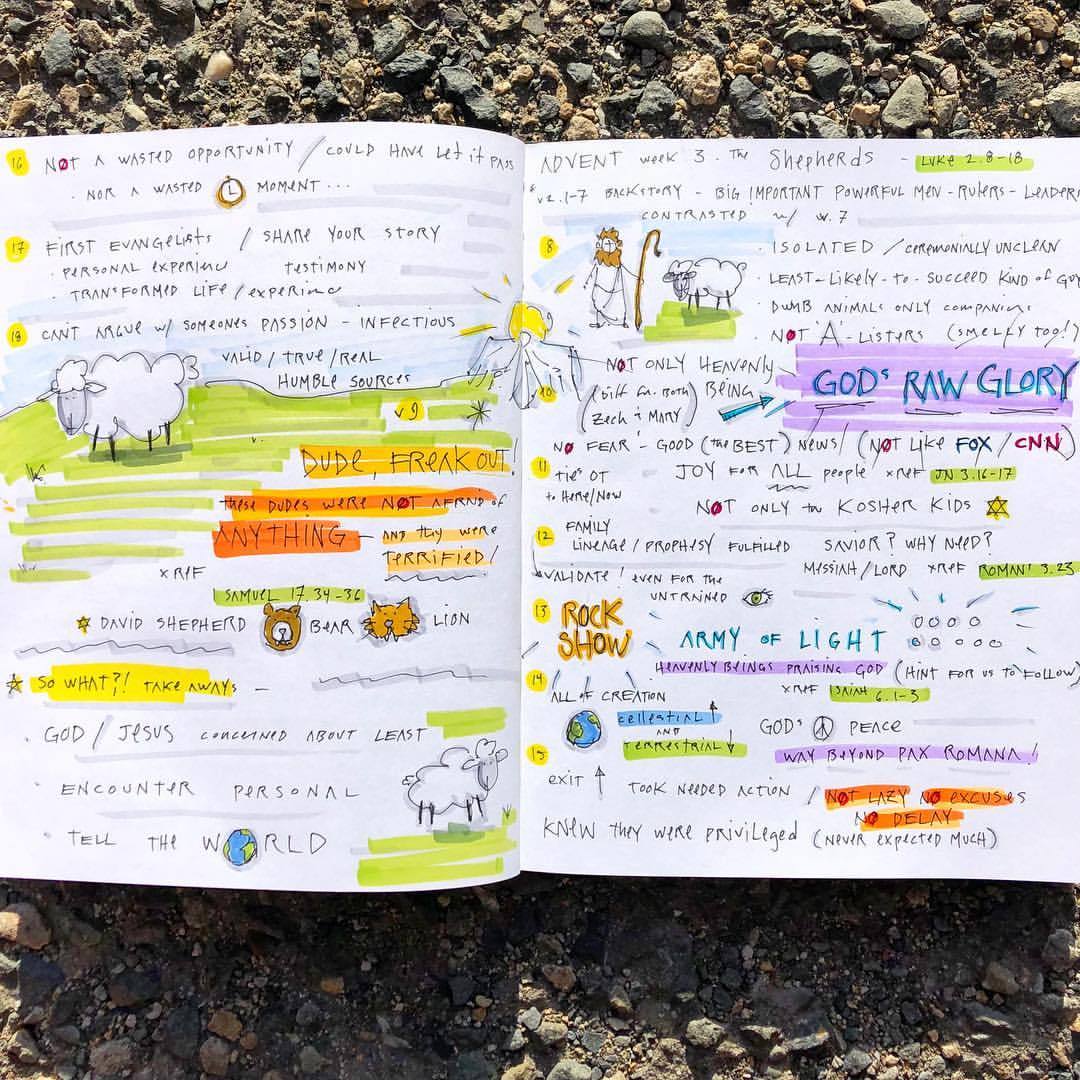 16 NOT A WASTED OPPORTUNITY / COULD HAVE LET it PASS
· NOR A WASTED MOMENT ...
17 FIRST EVANGELISTS / SHARE YOUR STORY
· PERSONAL EXPERIENCE TESTIMONY
· TRANSFORMED LIFE / EXPERIENCE
18 CAN'T ARGUE W/ SOMEONES PASSION - INFECTIOUS
VALID / TRUE / REAL
HUMBLE SOURCES
v9
DUDE, FREAK OUT!
these DUDES WERE NOT AFRAID OF
ANYTHING - AND they WERE
TERRIFIED!
XREF
1 SAMUEL 17.34-36
DAVID SHEPHERD BEAR LION
SO WHAT?! TAKE AWAYS -
· GOD / JESUS CONCERNED ABOUT LEAST
· ENCOUNTER PERSONAL
· TELL THE WORLD
ADVENT week 3 · The Shepherds - LUKE 2.8-18
v2.1-7 BACKSTORY - BIG IMPORTANT POWERFUL MEN - RULERS - LEADERS
CONTRASTED w/ v.7
8 · ISOLATED / CEREMONIALLY UNCLEAN
· LEAST-LIKELY-TO-SUCCEED KIND of GUY
· DUMB ANIMALS ONLY COMPANIONS
NOT 'A'-LISTERS (SMELLY TOO!)
NOT ONLY HEAVENLY BEING
GODS RAW GLORY
10 (Zech & MARY)
NO FEAR! - GOOD (the BEST) NEWS! (NOT LIKE FOX / CNN)
11 TIES OT to HERE/NOW
JOY FOR ALL people XREF JN 3.16-17
NOT ONLY the KOSHER KIDS
12 FAMILY LINEAGE / PROPHESY FULFILLED SAVIOR? WHY NEED?
MESSIAH/LORD XREF ROMANS 3.23
VALIDATE! EVEN FOR THE UNTRAINED
13 ROCK SHOW
ARMY OF LIGHT
HEAVENLY BEINGS PRAISING GOD (HINT FOR US TO FOLLOW)
14 XREF ISAIAH 6.1-3
ALL OF CREATION
CELLESTIAL AND TERRESTRIAL
GOD'S PEACE
WAY BEYOND PAX ROMANA!
15 EXIT TOOK NEEDED ACTION / NOT LAZY NO EXCUSES
NO DELAY
KNEW THEY WERE PRIVILEGED (NEVER EXPECTED MUCH)